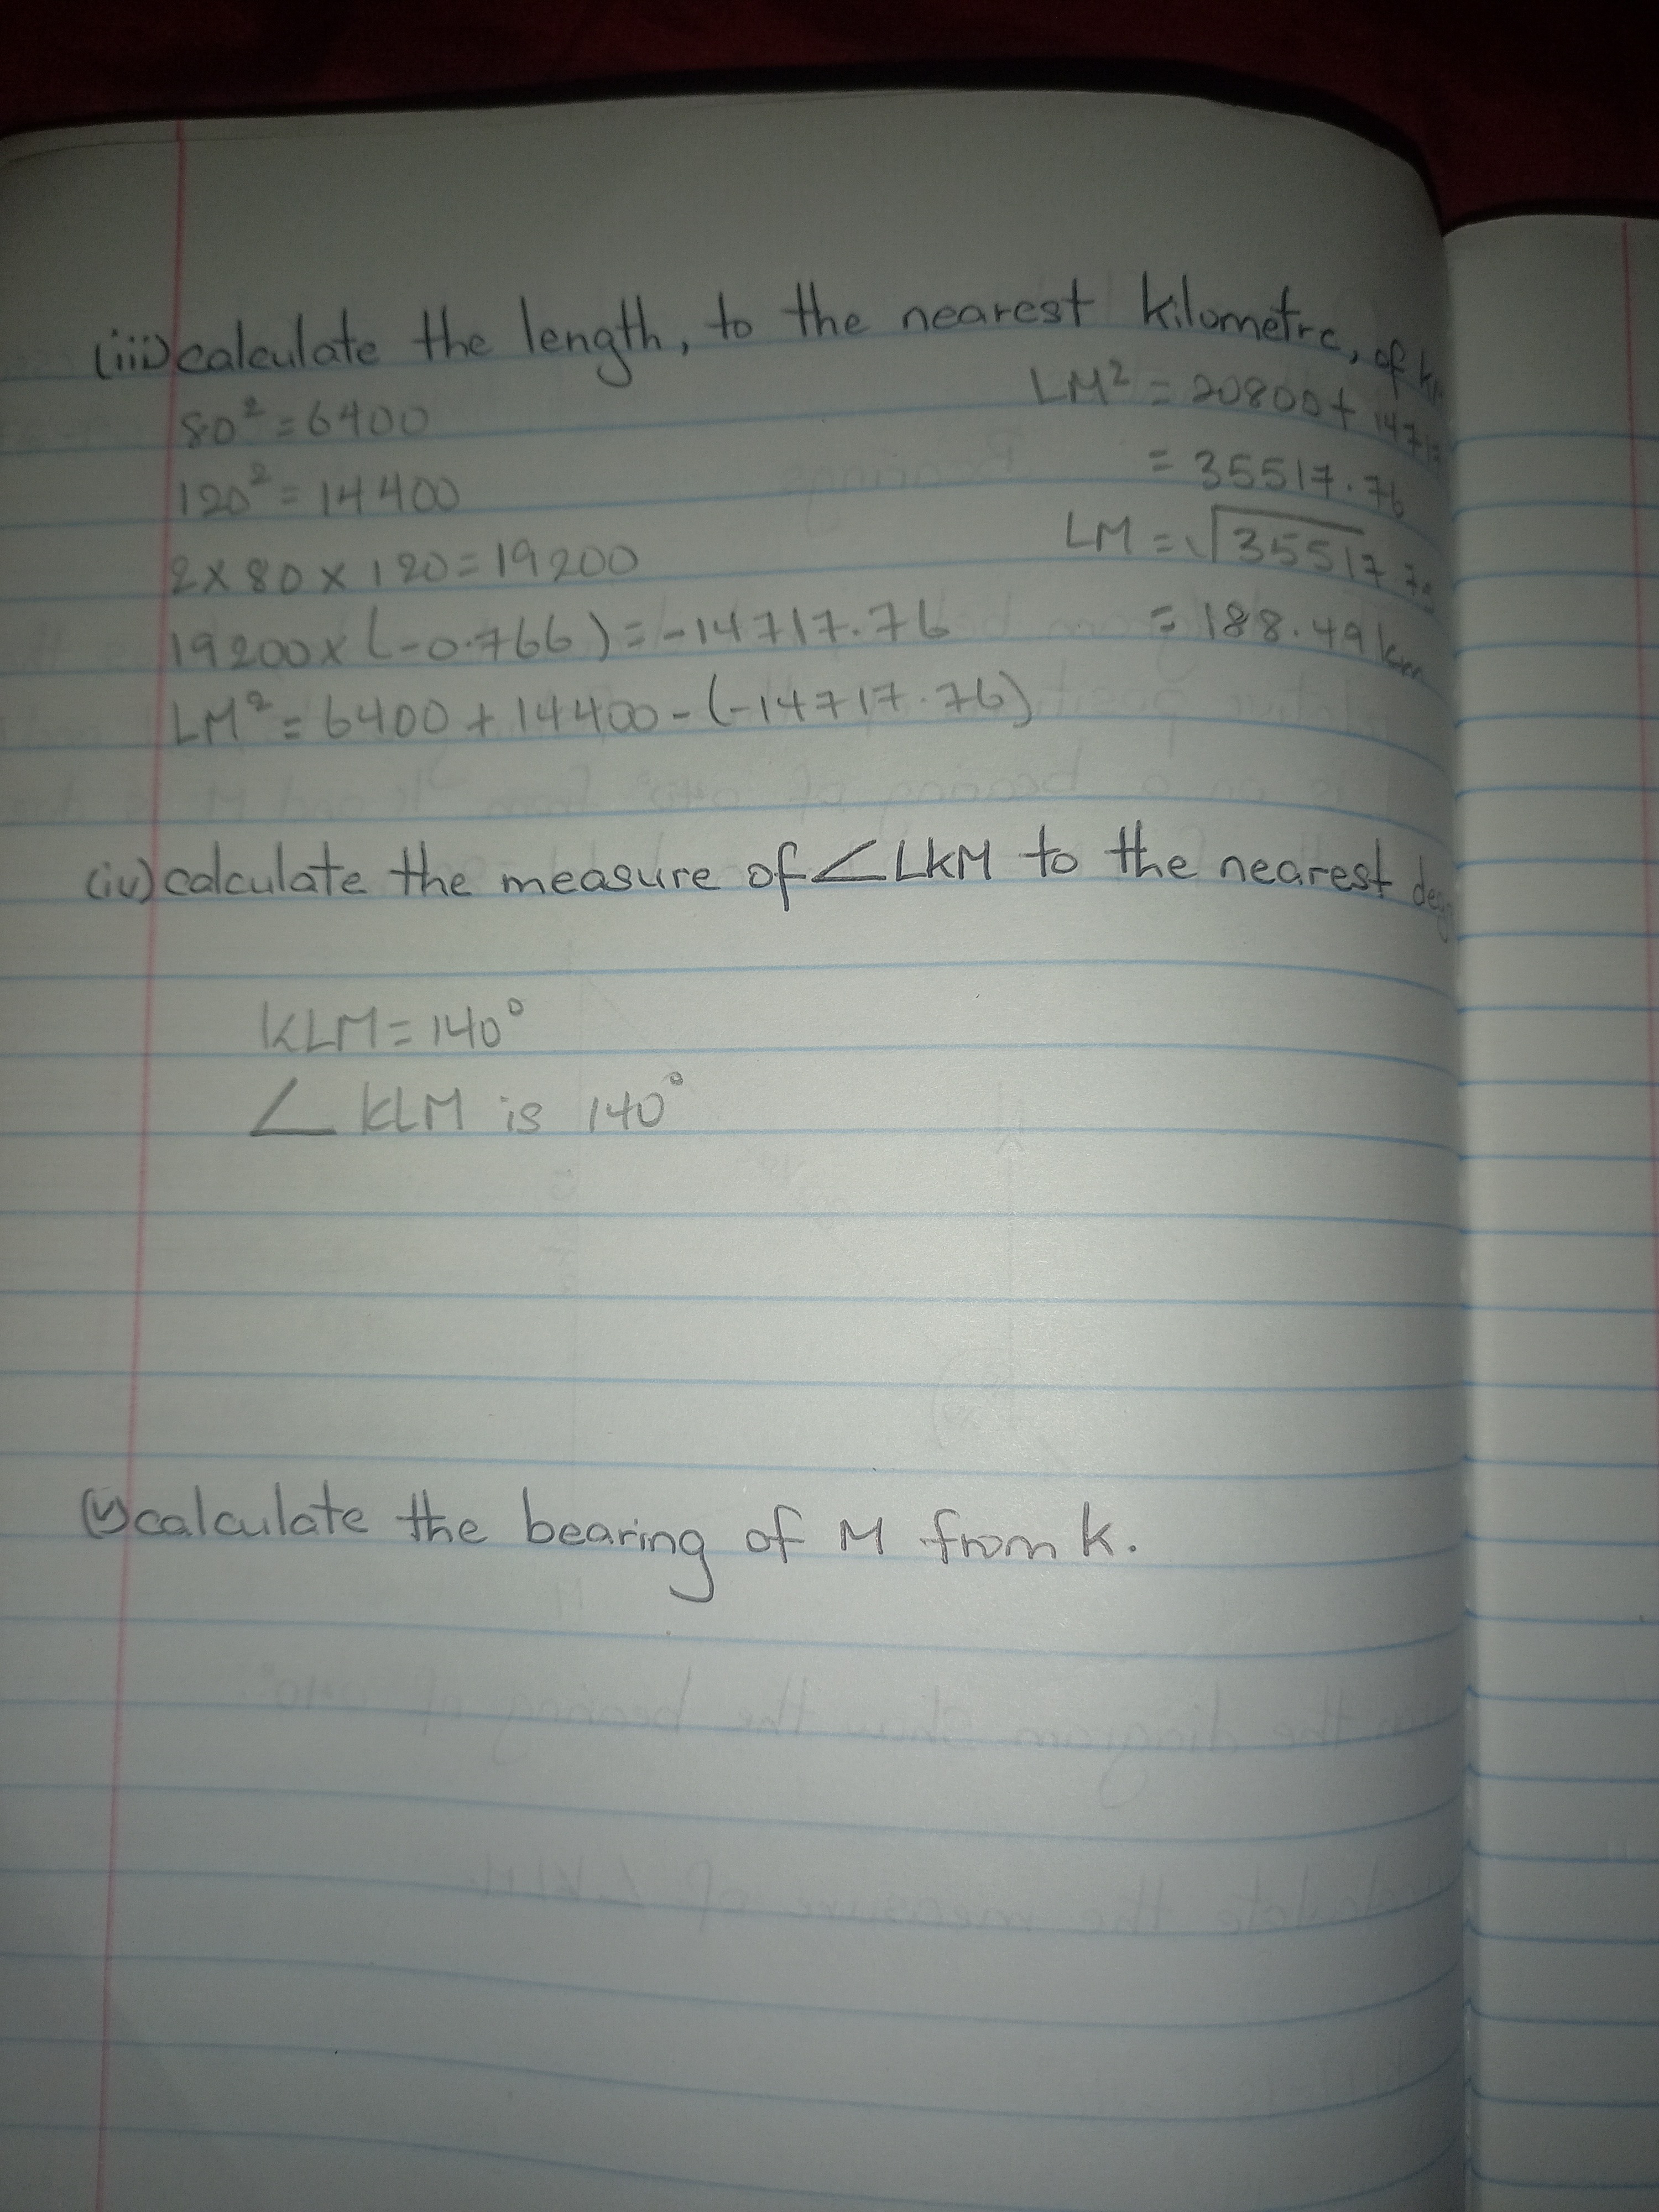 (iii) calculate the length, to the nearest kilometre, of
80² = 6400
120² = 14400
2 x 80 x 120 = 19200
19200 x (-0.766) = -14717.76
LM² = 6400 + 14400 - (-14717.76)
LM² = 20800 +
= 35517.76
LM = √35517.76
= 188.49 km
(iv) calculate the measure of ∠LKM to the nearest
KLM = 140°
∠ KLM is 140°
(v) calculate the bearing of M from k.